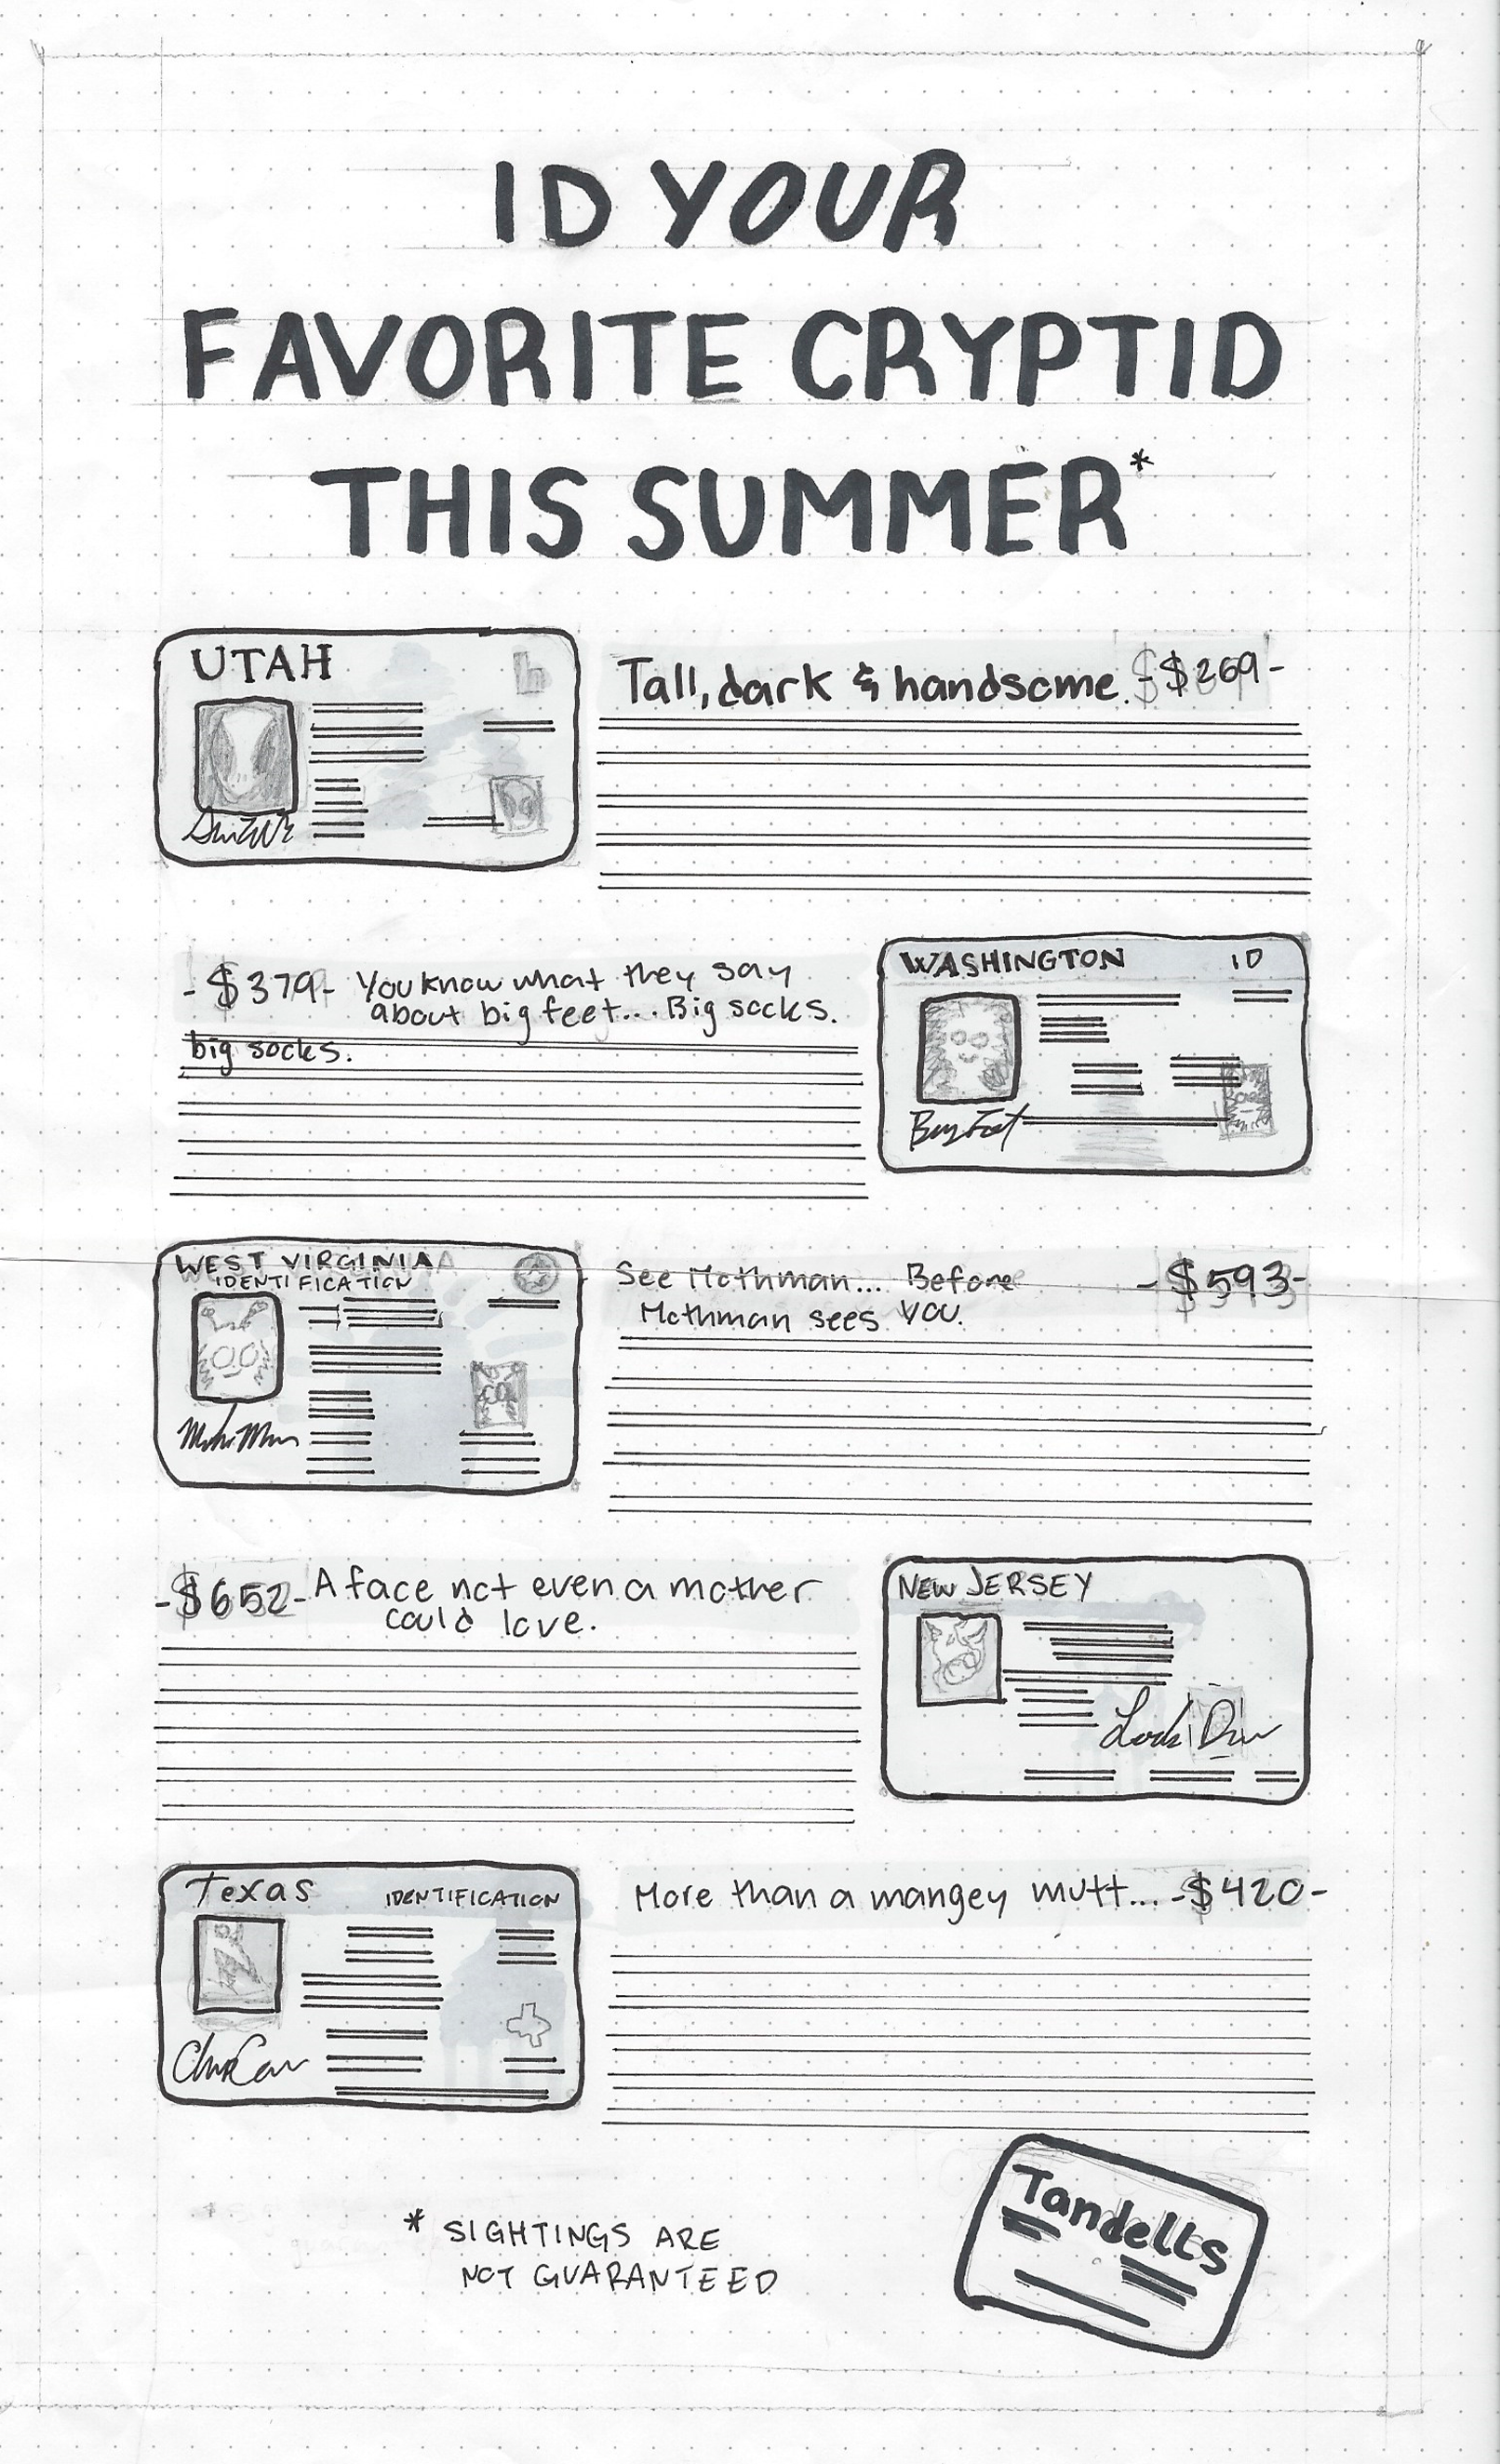 ID YOUR
FAVORITE CRYPTID
THIS SUMMER*
UTAH
Tall, dark & handsome. -$269-
-$379- You know what they say
about big feet... Big socks.
big socks.
WASHINGTON ID
WEST VIRGINIA
IDENTIFICATION
See Mothman... Before
Mothman sees you.
-$593-
-$652- A face not even a mother
could love.
NEW JERSEY
Texas IDENTIFICATION
More than a mangey mutt... -$420-
Tandells
* SIGHTINGS ARE
NOT GUARANTEED